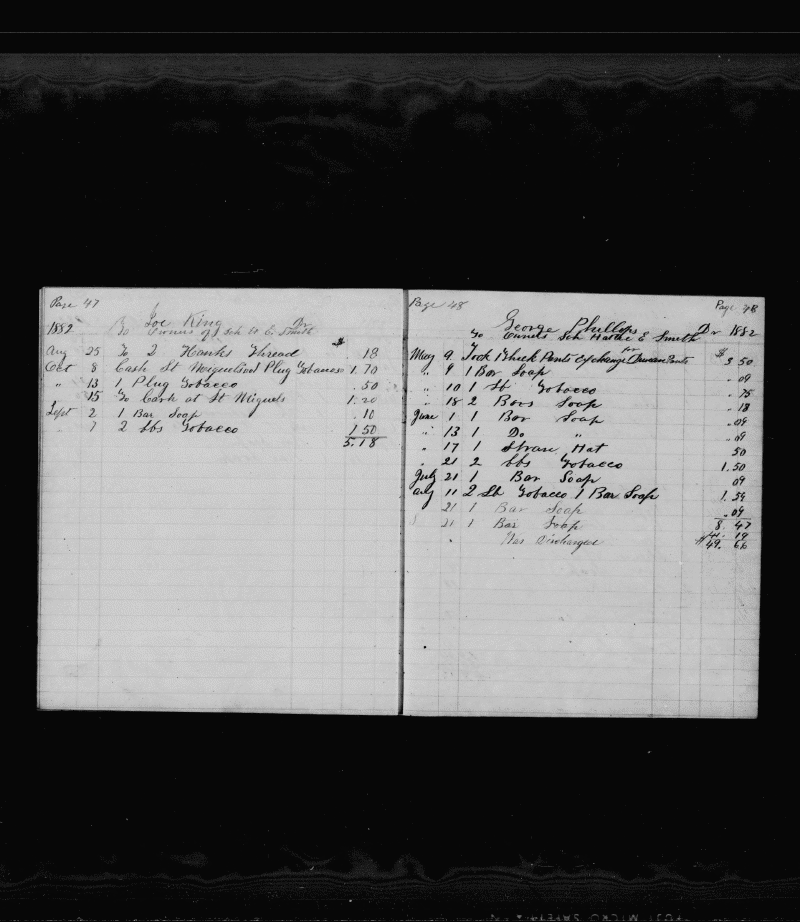 Page 47
Joe King Dr
1882 To Owners of Sch H E. Smith
$
Aug 25 To 2 Hanks Thread .18
Oct 8 Cash St Miguel and Plug Tobacco 1.70
" 13 1 Plug Tobacco .50
15 To Cash at St Miguels 1.20
Sept 2 1 Bar Soap .10
7 2 lbs Tobacco 1 50
5.18
Page 48 Page 48
George Phillops Dr 1882
To Owners Sch Hattie E Smith
$
May 9. Thick Pants Exchange for Pants 3 50
" 9 1 Bar Soap .09
" 10 1 lb Tobacco .75
" 18 2 Bars Soap .18
June 1 1 Bar Soap .09
" 13 1 Do " .09
" 17 1 Straw Hat 50
" 21 2 lbs Tobacco 1.50
July 21 1 Bar Soap 09
Aug 11 2 Lb Tobacco 1 Bar Soap 1.59
21 1 Bar Soap .09
21 1 Bar Soap
8. 47
Was Discharged 41. 19
$49. 66